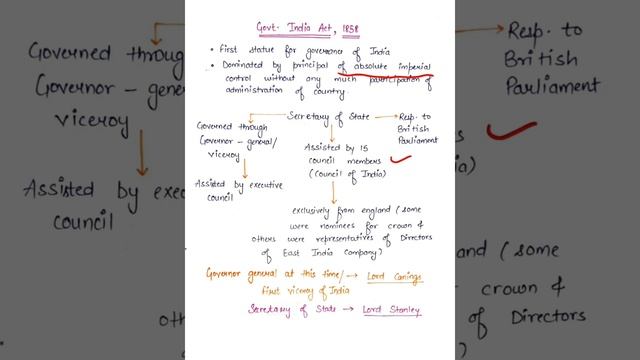 Govt. India Act, 1858
• First statue for governance of India
• Dominated by principal of absolute imperial
control without any much participation of
administration of country.
Secretary of State
Governed through
Governor - general/
viceroy
Assisted by executive
council
Assisted by 15
council members
(Council of India)
Resp. to
British
Parliament
exclusively from england (some
were nominees for crown &
others were representatives of Directors
of East India Company)
Governor general at this time/ → Lord Canings
first viceroy of India
Secretary of State → Lord Stanley
Governed through
Governor - general
viceroy
Assisted by execu
council
othe
Resp. to
British
Parliament
ers
ia)
and (some
crown &
of Directors